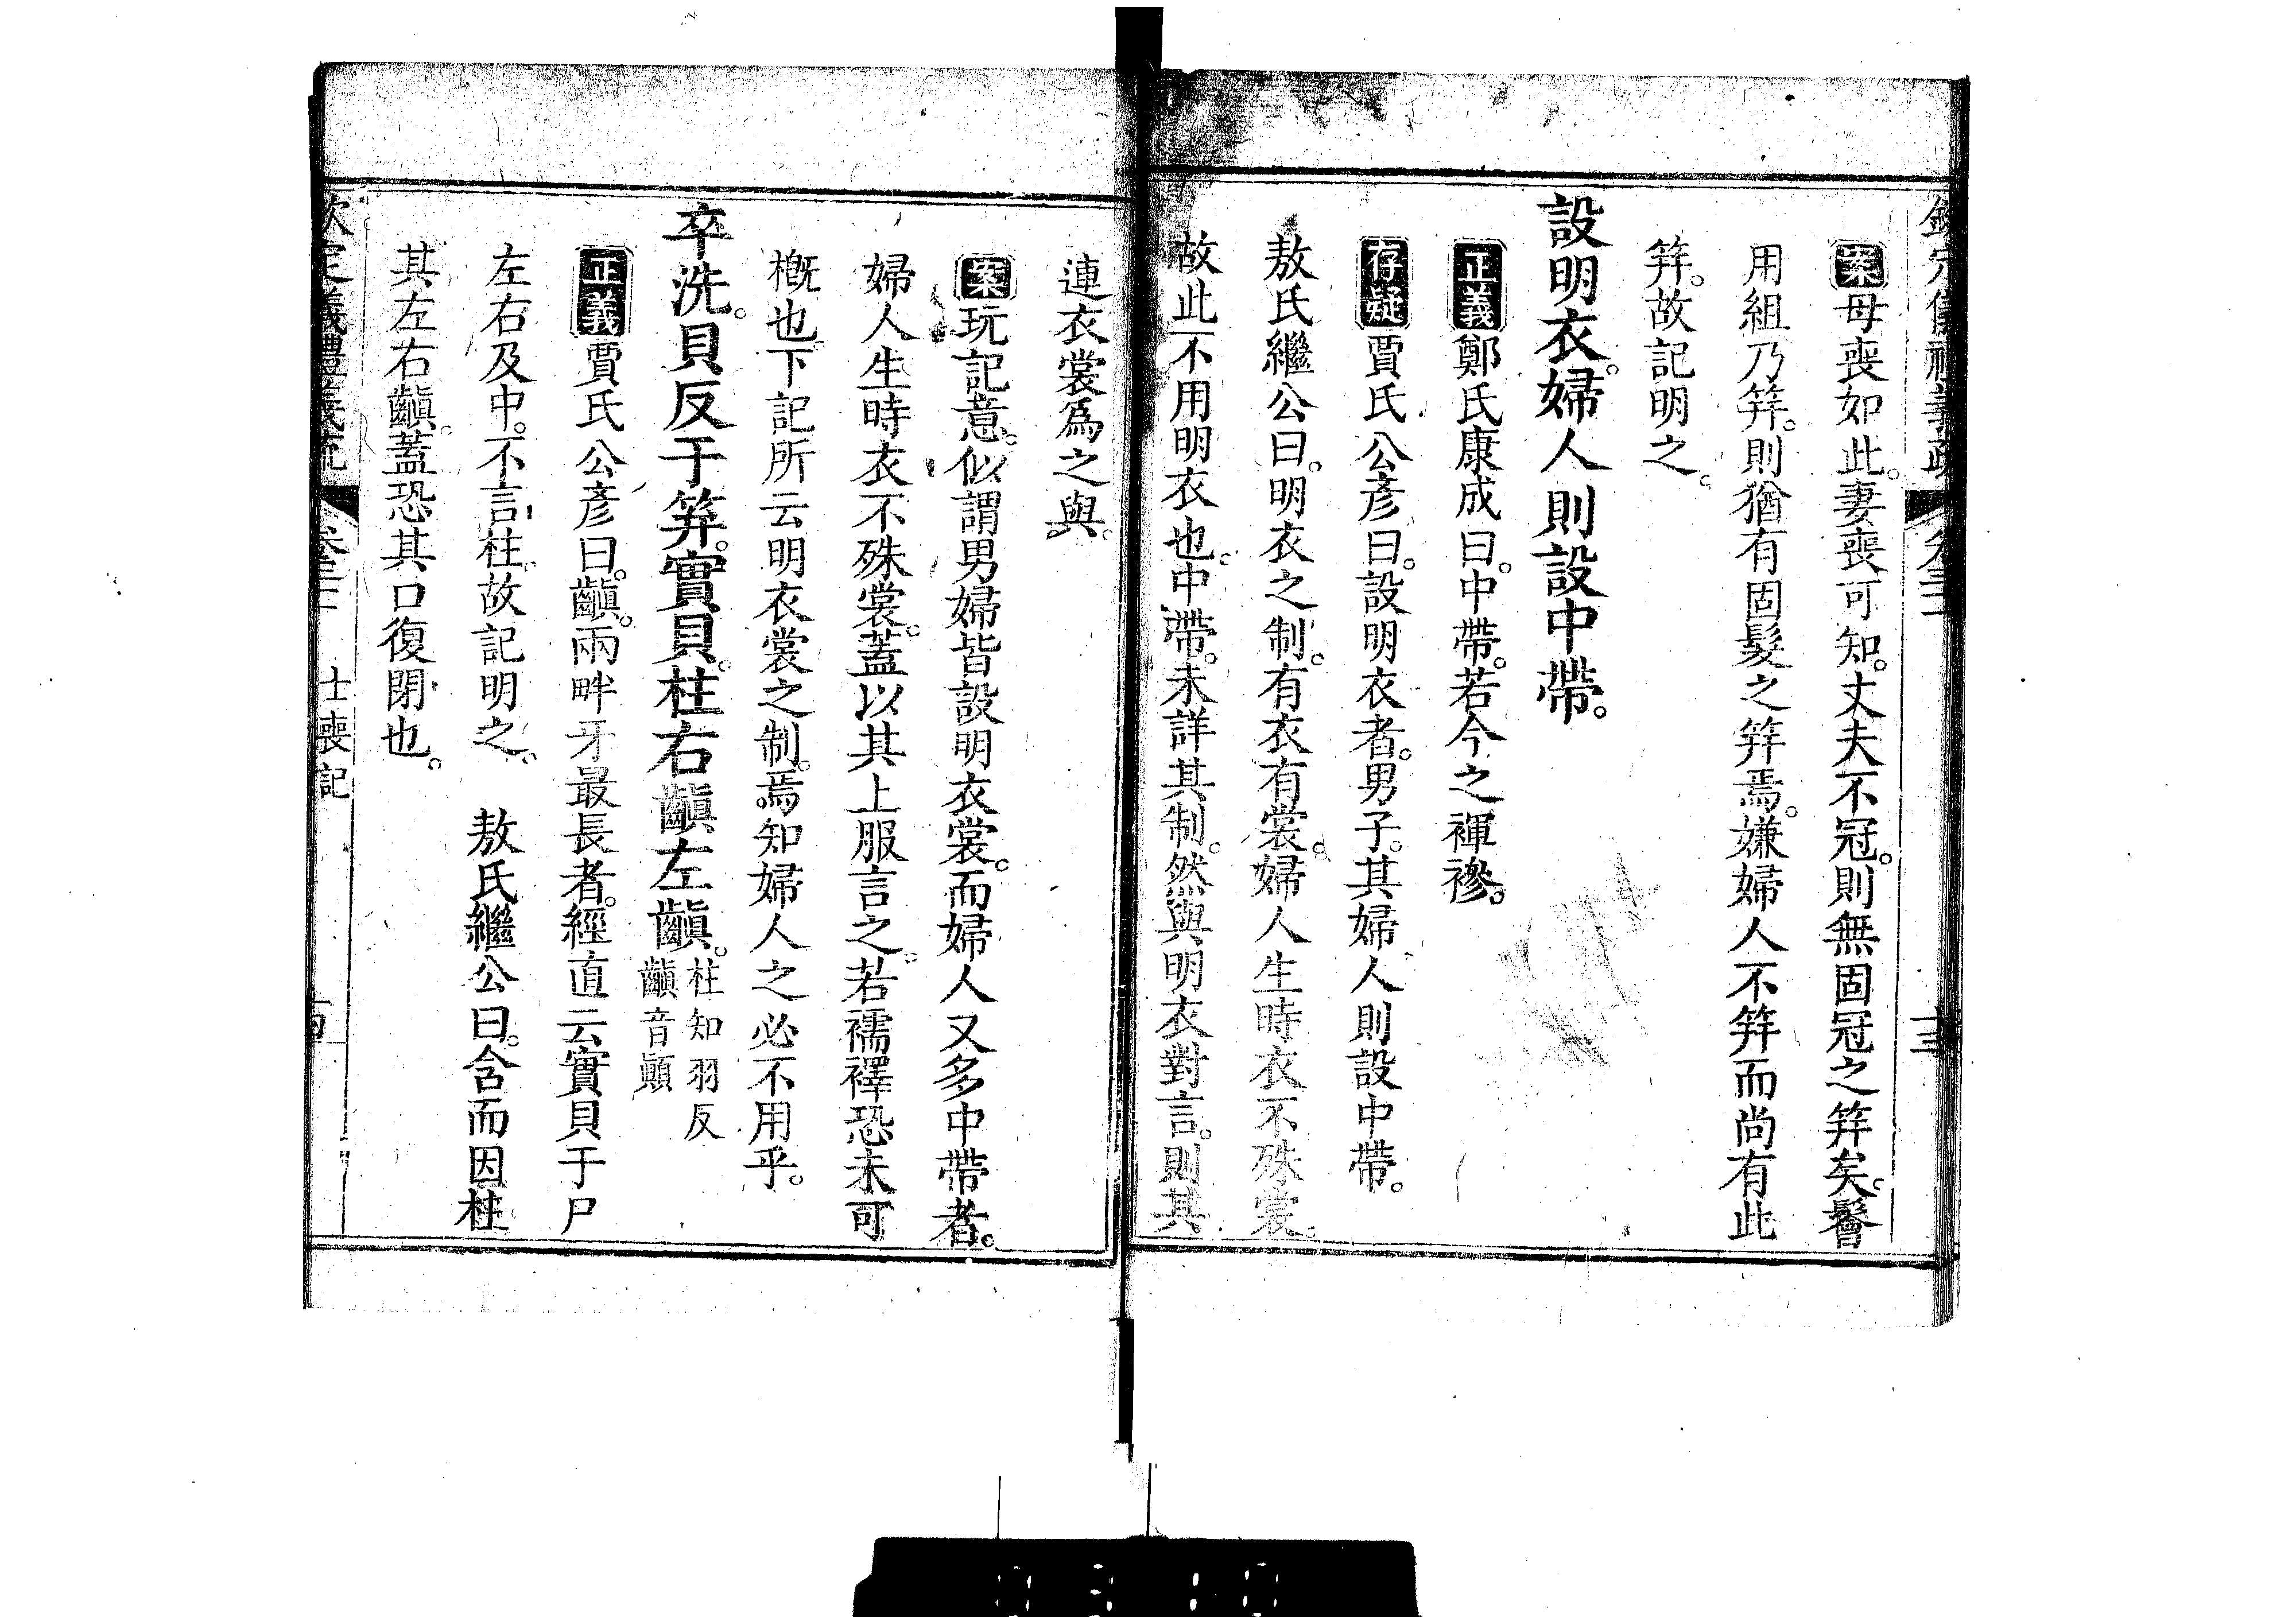 欽定儀禮義疏 卷三十一 十三
案母喪如此。妻喪可知。丈夫不冠。則無固冠之笄矣。鬠
用組乃笄。則猶有固髮之笄焉。嫌婦人不笄而尚有此
笄。故記明之。
設明衣。婦人則設中帶。
正義鄭氏康成曰。中帶。若今之褌襂。
存疑賈氏公彥曰。設明衣者。男子。其婦人則設中帶。
敖氏繼公曰。明衣之制。有衣有裳。婦人生時衣不殊裳。
故此不用明衣也。中帶。未詳其制。然與明衣對言。則其
連衣裳爲之與。
案玩記意。似謂男婦皆設明衣裳。而婦人又多中帶者。
婦人生時衣不殊裳。蓋以其上服言之。若襦襗恐未可
槪也。下記所云明衣裳之制。焉知婦人之必不用乎。
卒洗。貝反于笲。實貝。柱右齻左齻。柱知羽反
齻音顚
正義賈氏公彥曰。齻。兩畔牙最長者。經直云實貝于尸
左右及中。不言柱。故記明之。 敖氏繼公曰。含而因柱
其左右齻。蓋恐其口復閉也。
欽定儀禮義疏 卷三十一 士喪記 十四